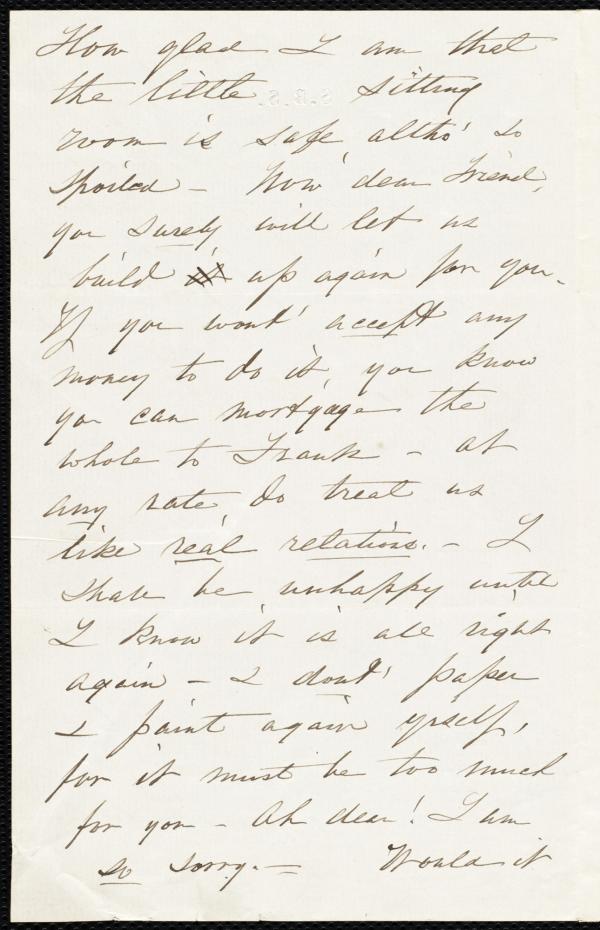 How glad I am that
the little sitting
room is safe altho' so
spoiled – Now dear Friend,
you surely will let us
build it up again for you –
If you wont' accept any
money to do it, you know
you can mortgage the
whole to Frank – at
any rate, do treat us
like real relations. – I
shall be unhappy until
I know it is all right
again – & dont' paper
& paint again yrself,
for it must be too much
for you – Ah dear! I am
so sorry. – Would it